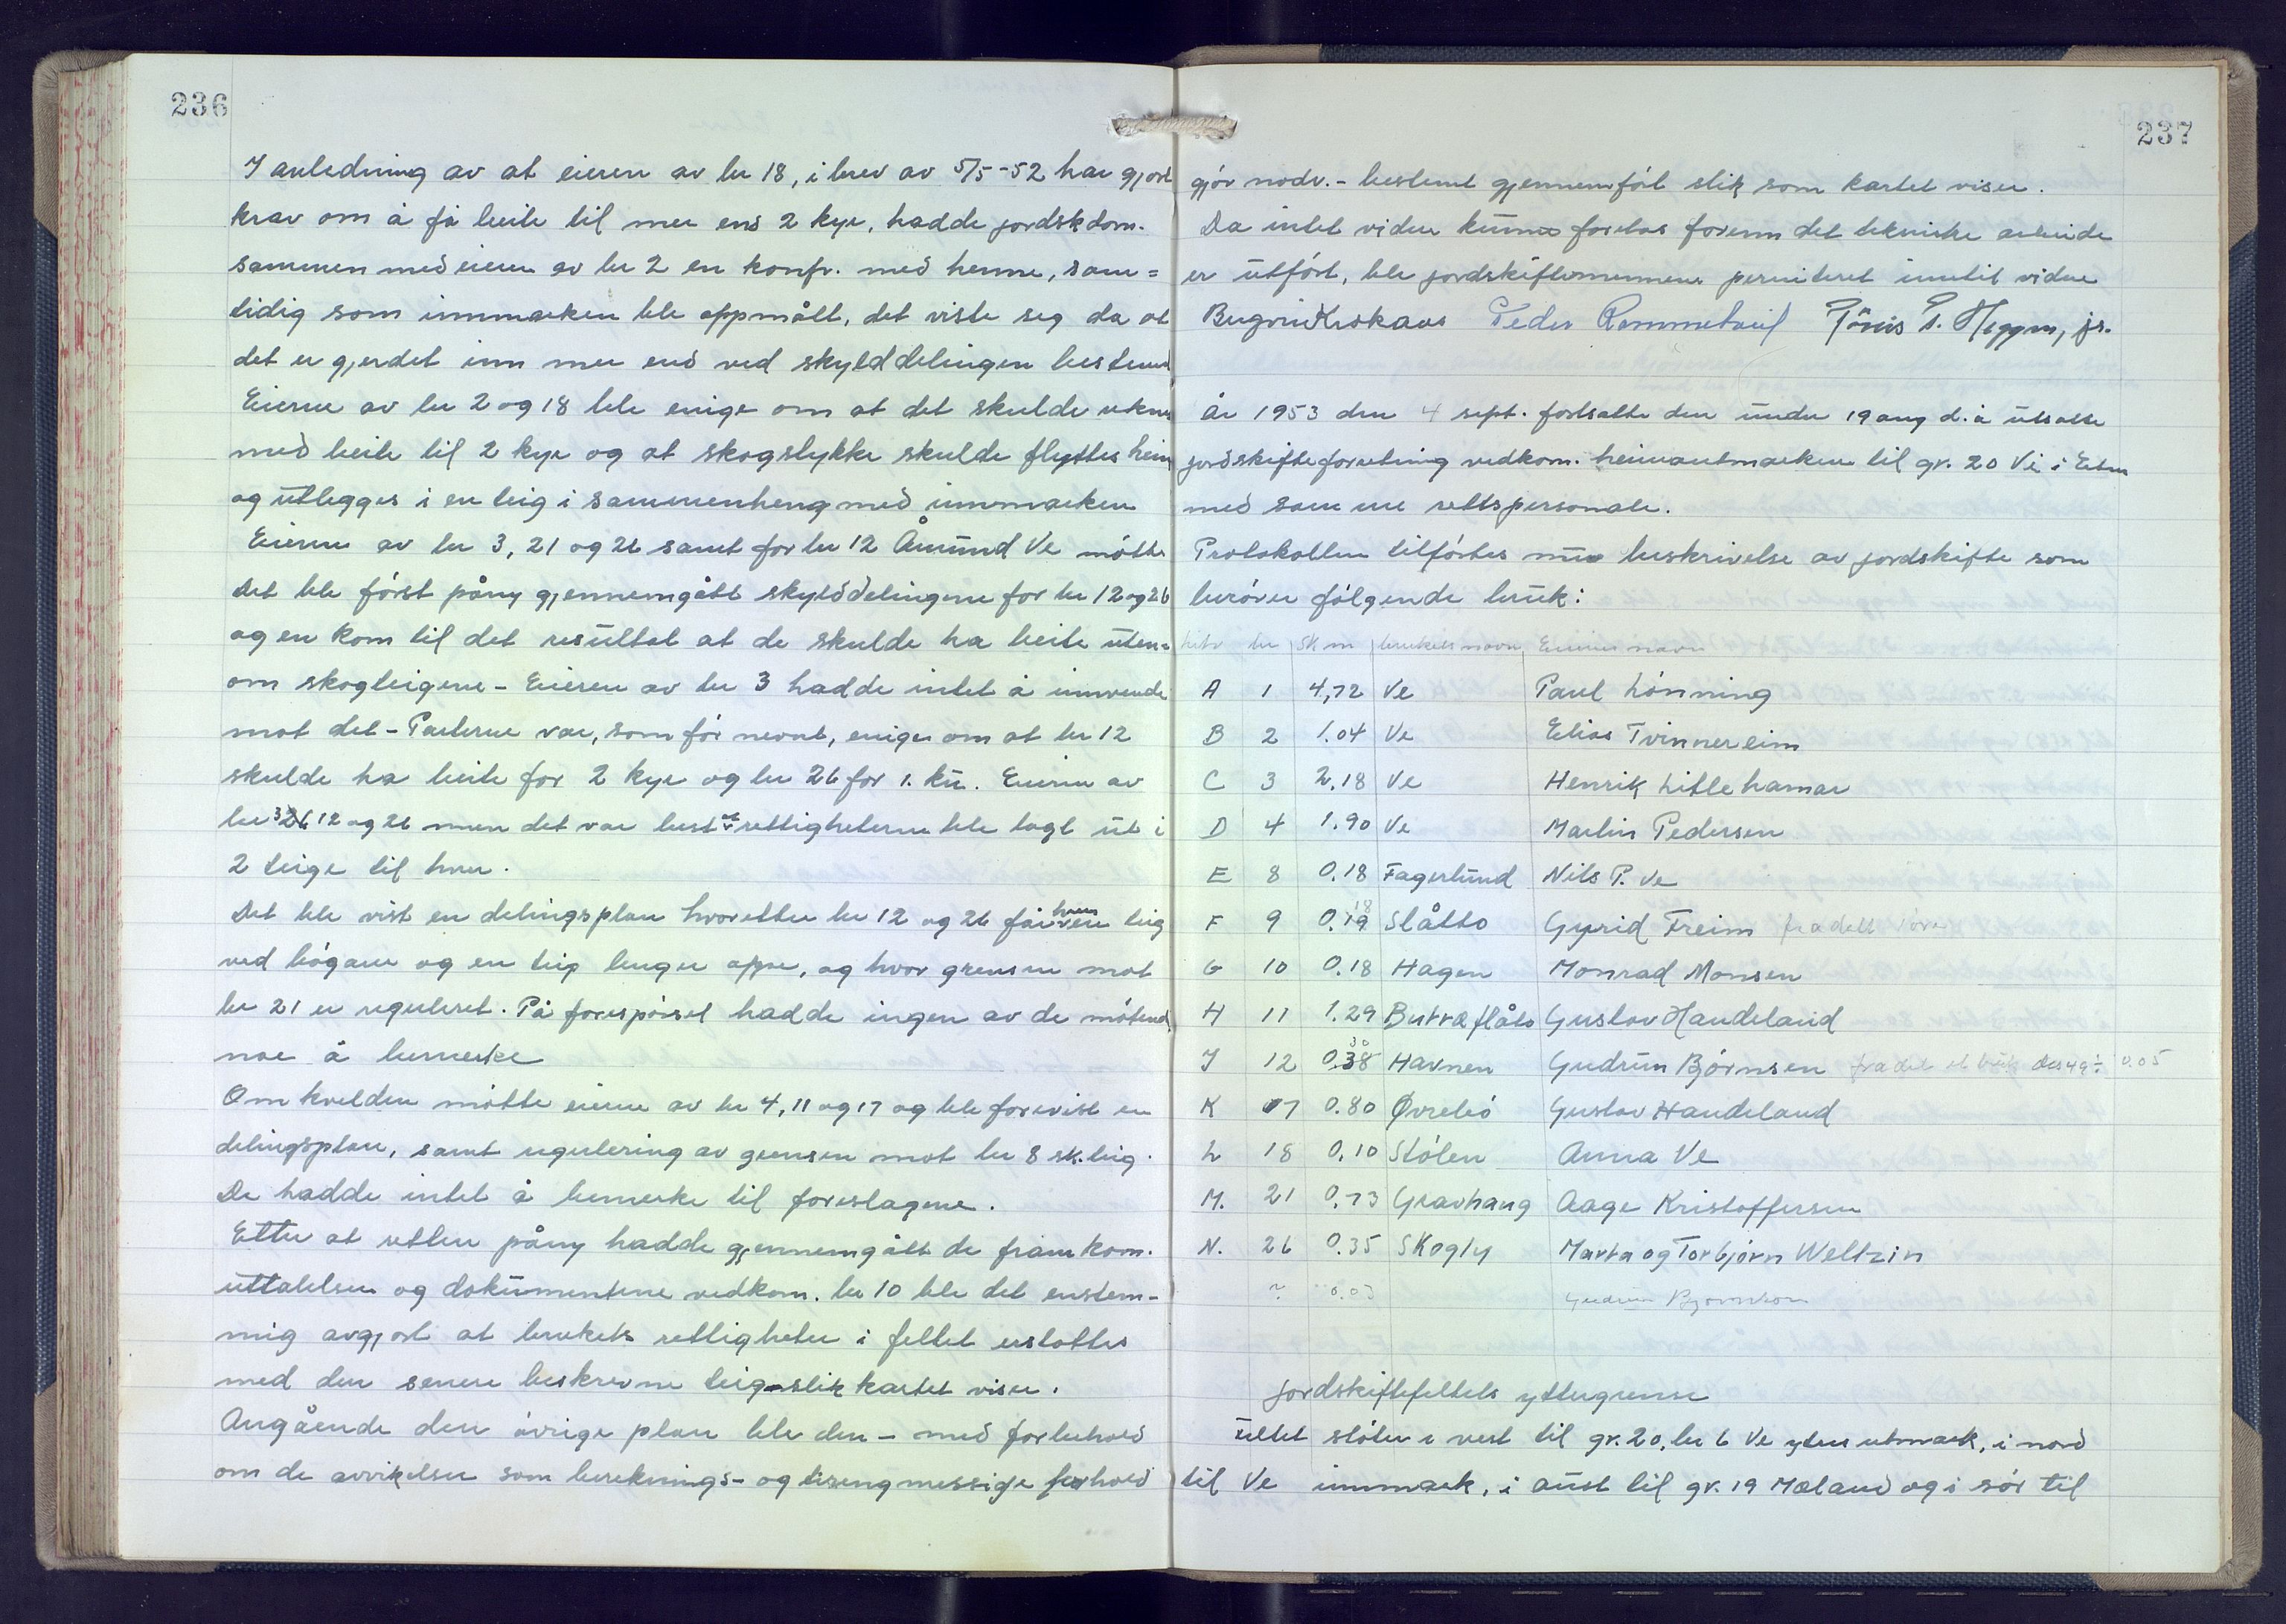 236
I anledning av at eieren av br 18, i brev av 5/5-52 har gjort
krav om å få beite til mer ens 2 kyr, hadde jordskdom.
sammen med eieren av br 2 en konfr. med henne, sam=
tidig som innmarken ble oppmålt, det viste seg da at
det er gjerdet inn mer end ved skylddelingen bestemt
Eierne av br 2 og 18 ble enige om at det skulde reknes
med beite til 2 kyr og at skogstykke skulde flyttes heim
og utlegges i en teig i sammenheng med innmarken
Eierne av br 3, 21 og 26 samt for br 12 Åmund Ve møtte
Det ble først påny gjennemgått skylddelingene for br 12 og 26
og en kom til det resultat at de skulde ha beite uten=
om skogteigene - Eieren av br 3 hadde intet å innvende
mot det - Parterne var, som før nevnt, enige om at br 12
skulde ha beite for 2 kyr og br 26 for 1. ku. Eierne av
br 3 12 og 26 men det var best at rettigheterne ble lagt ut i
2 teige til hver.
Det ble vist en delingsplan hvoretter br 12 og 26 får hver en teig
ved bøgare og en teig lenger oppe, og hvor grensene mot
br 21 er reguleret. På forespørsel hadde ingen av de møtende
noe å bemerke
Om kvelden møtte eierne av br 4, 11 og 17 og ble forevist en
delingsplan, samt regulering av grensen mot br 8 sk. teig.
De hadde intet å bemerke til foreslagene.
Etter at retten påny hadde gjennemgått de framkom.
uttalelser og dokumentene vedkom. br 10 ble det enstem-
mig avgjort at brukets rettigheter i feltet erstattes
med den senere beskrevne teig slik kartet viser.
Angående den øvrige plan ble den - med forbehold
om de avvikelser som bereknings- og terrengmessige forhold
237
gjør nødv. - bestemt gjennemført slik som kartet viser.
Da intet videre kunne foretas forenn det tekniske arbeide
er utført, ble jordskiftemennene permiteret inntil videre
Peder Rommetveit
År 1953 den 4 sept. fortsatte den under 19 aug d. å utsatte
jordskifteforretning vedkom. heimautmarken til gr. 20 Ve i Etne
med samme rettspersonale.
Protokollen tilførtes nu beskrivelse av jordskifte som
berører følgende bruk:
litr br Sk m brukets navn Eierens navn
A 1 4,72 Ve Paul Lønning
B 2 1.04 Ve Elias Tvinnereim
C 3 2.18 Ve Henrik Litlehamar
D 4 1.90 Ve Martin Pedersen
E 8 0.18 Fagerlund Nils P. Ve
F 9 0.19 18 Slåtto Gyrid Freim fradelt
G 10 0.18 Hagen Monrad Monsen
H 11 1.29 Butraflåto Gustav Handeland
J 12 0.38 30 Havnen Gudrun Bjørnsen fradelt et bruk br 49 ÷ 0.05
K 17 0.80 Øvrebø Gustav Handeland
L 18 0.10 Stølen Anna Ve
M. 21 0.73 Gravhaug Aage Kristoffersen
N. 26 0.35 Skogly Marta og Torbjørn Weltzin
Gudrun Bjørnson
Jordskiftefeltets yttergrense
Feltet støter i vest til gr. 20, br 6 Ve ytre utmark, i nord
til Ve innmark, i aust til gr. 19 Mæland og i sør til